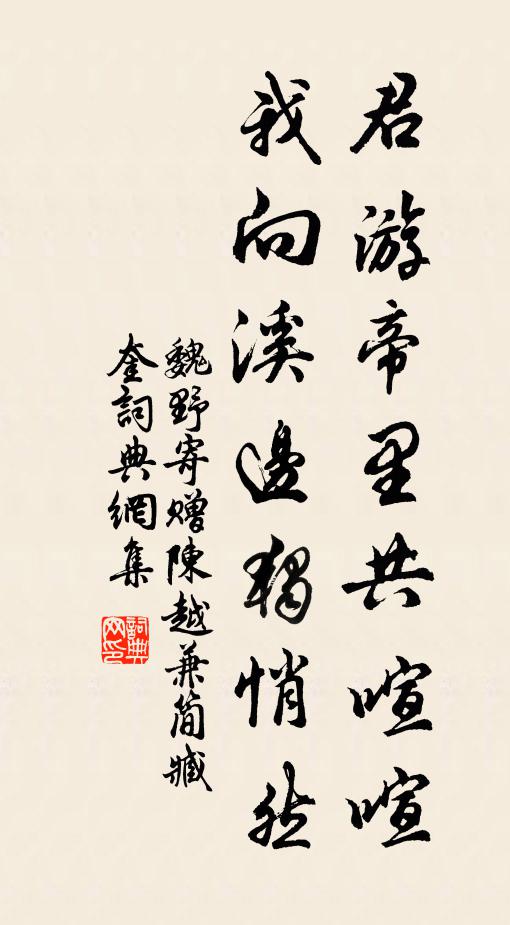 君游帝里共喧喧
我向溪邊獨悄然
魏野寄贈陳越兼簡臧
奎詞典網集
詞典網印